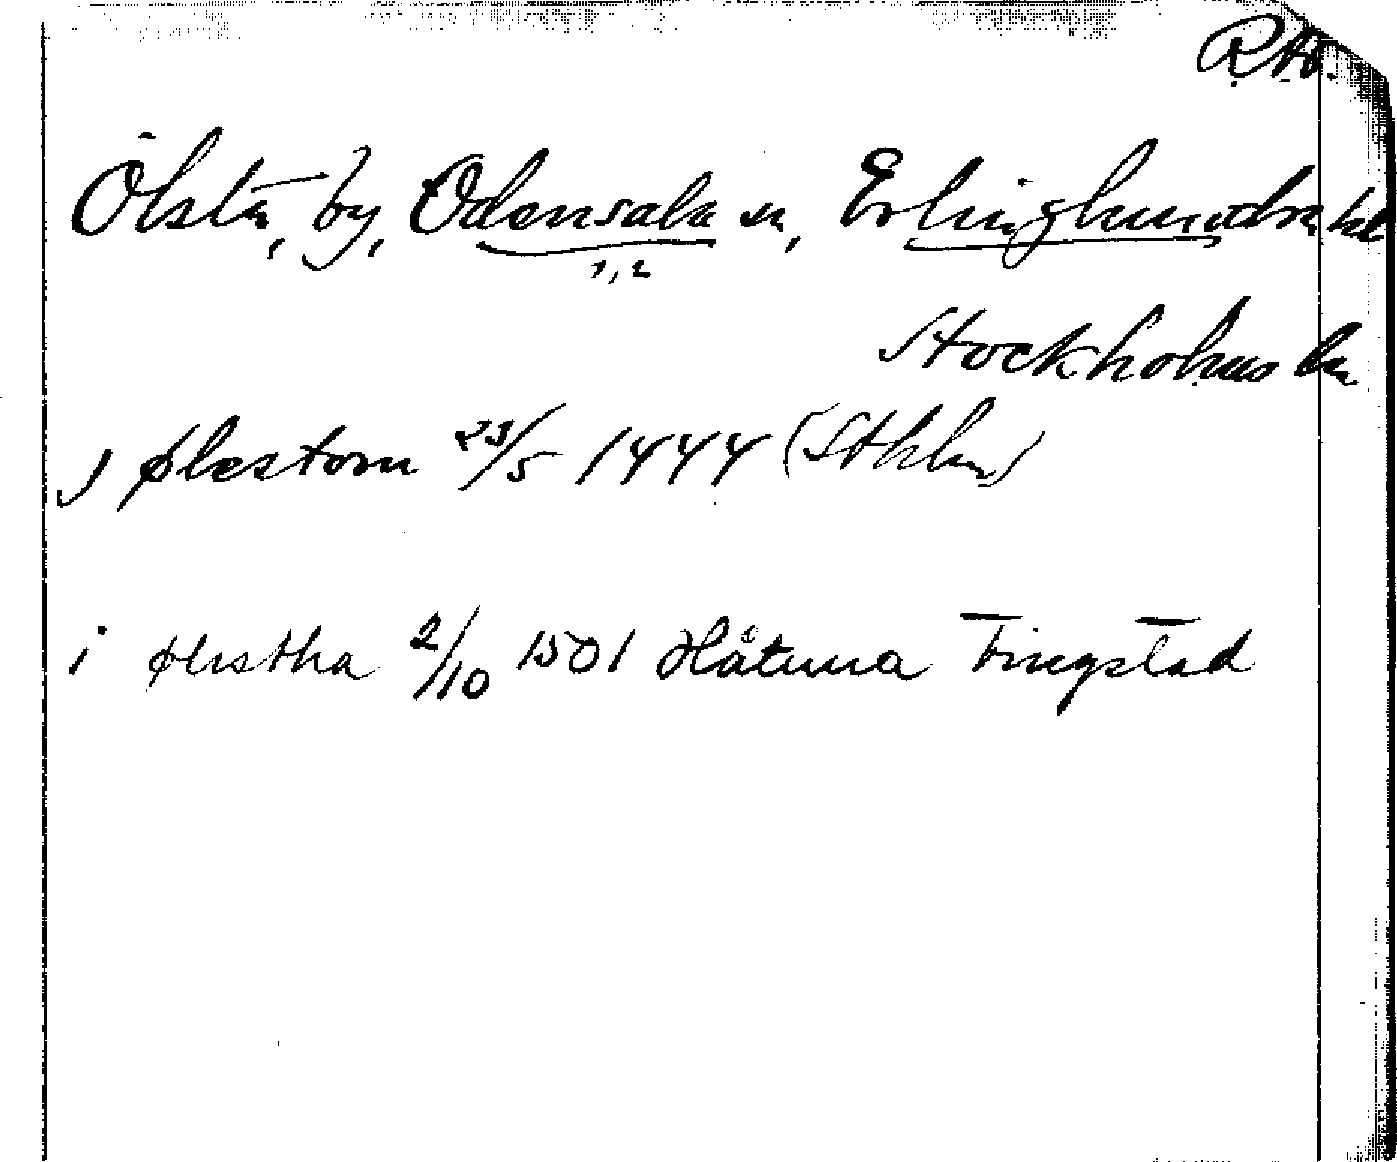 RAö.
Ölsta, by, Odensala sn, Erlinghundra hd
1, 2
Stockholms län
J ølestom 23/5 1444 (Sthlm)
i ølistha 2/10 1501 Håtuna Tingstad